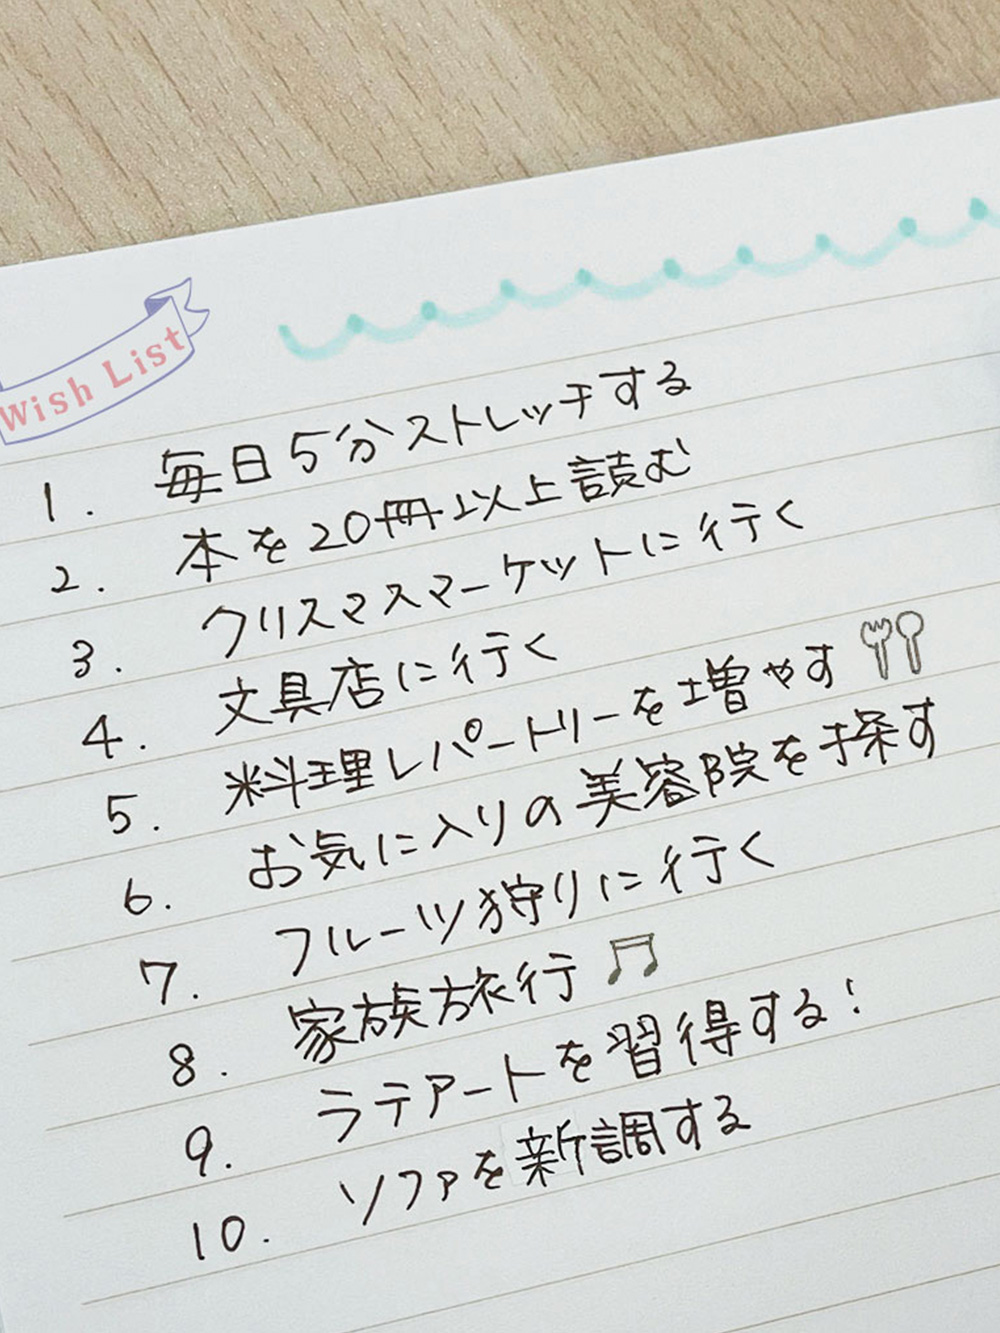 Wish List
1. 毎日5分ストレッチする
2. 本を20冊以上読む
3. クリスマスマーケットに行く
4. 文具店に行く
5. 料理レパートリーを増やす
6. お気に入りの美容院を探す
7. フルーツ狩りに行く
8. 家族旅行
9. ラテアートを習得する!
10. ソファを新調する